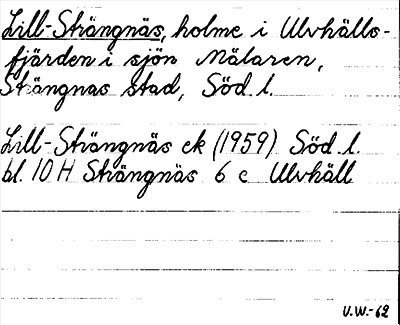 Lill-Strängnäs, holme i Ulvhälls-
fjärden i sjön Mälaren,
Strängnas stad, Söd.l.
Lill-Strängnäs ek (1959) Söd.l.
bl. 10 H Strängnäs 6 e Ulvhäll
V.W.-62